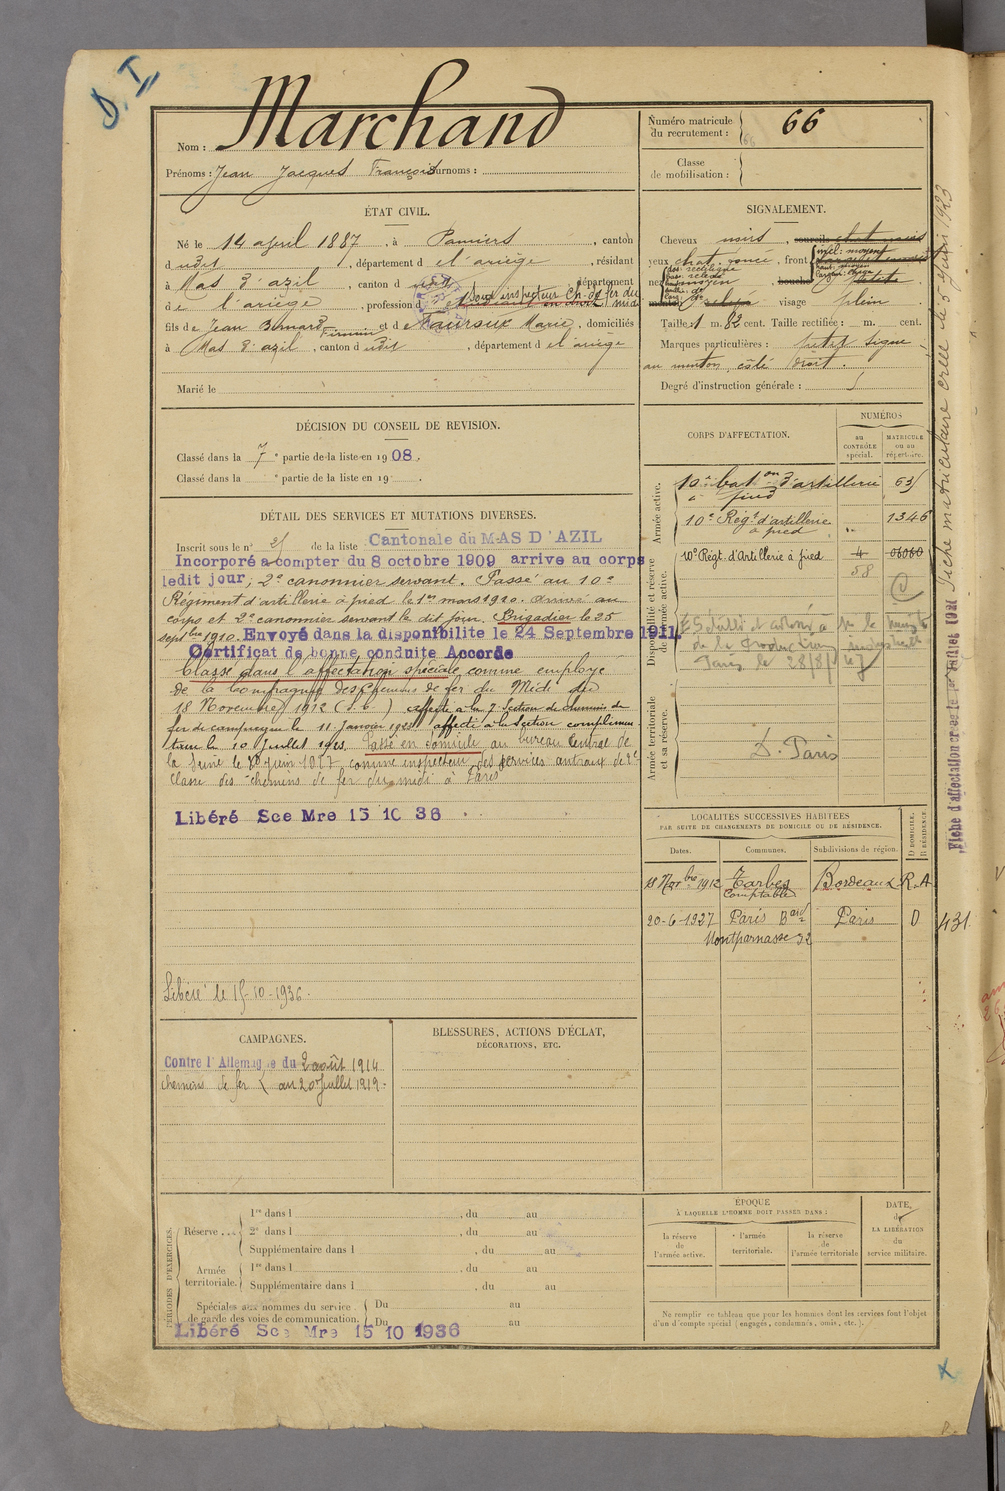 D. I.
Nom : Marchand
Prénoms : Jean Jacques François Surnoms :
Numéro matricule du recrutement : 66
66
Classe de mobilisation :
ÉTAT CIVIL.
Né le 14 april 1887, à Pamiers, canton
d udit, département d e l'ariège, résidant
à Mas d'azil, canton d udit, département
d e l'ariège, profession d sous inspecteur Ch. de fer du midi
fils de Jean Bernard Firmin et d e Faursux Marie, domiciliés
à Mas d'azil, canton d udit, département d e l'ariège
Marié le
SIGNALEMENT.
Cheveux noirs, sourcils chat noirs
yeux chat. foncé, front incl: moyent
haut: moyen
largeur: large
nez dos: rectiligne moyen bouche petite
visage plein
Taille 1 m. 82 cent. Taille rectifiée : m. cent.
Marques particulières : petit signe
au menton, côté droit.
Degré d'instruction générale : 5
DÉCISION DU CONSEIL DE REVISION.
Classé dans la 7 e partie de la liste en 1908.
Classé dans la e partie de la liste en 19
CORPS D'AFFECTATION.
NUMÉROS
au CONTRÔLE spécial.
MATRICULE ou au répertoire.
Armée active.
10e baton d'artillerie à pied 63
10e Régt d'artillerie à pied 1346
Disponibilité et réserve de l'armée active.
10e Régt. d'Artillerie à pied 4 06060
58
Paris le 28/8/
Armée territoriale et sa réserve.
D. Paris
DÉTAIL DES SERVICES ET MUTATIONS DIVERSES.
Inscrit sous le n° 25 de la liste Cantonale du MAS D'AZIL
Incorporé a compter du 8 octobre 1909 arrive au corps
ledit jour, 2e canonnier servant. Passé au 10e
Régiment d'artillerie à pied le 1er mars 1910. Arrivé au
corps et 2e canonnier servant le dit jour. Brigadier le 25
septbre 1910. Envoyé dans la disponibilite le 24 Septembre 1911.
Certificat de bonne conduite Accorde
Classé dans l'affectation spéciale comme employé
de la Compagnie des Chemins de fer du Midi du
18 Novembre 1912 affecté à la 7 section de chemins de
fer de campagne le 11 Janvier 1923 affecté à la section complémen
taire le 10 Juillet 1923. Passé en domicile au bureau Central de
la Seine le 20 Juin 1927 comme inspecteur des services centraux de 2e
classe des chemins de fer du midi à Paris
Libéré Sce Mre 15 10 36
Libéré le 15-10-1936.
LOCALITÉS SUCCESSIVES HABITÉES
PAR SUITE DE CHANGEMENTS DE DOMICILE OU DE RÉSIDENCE.
Dates. Communes. Subdivisions de région. D DOMICILE. R RÉSIDENCE
18 Novbre 1912 Tarbes Comptable Bordeaux R. A
20-6-1927 Paris Bard Montparnasse 32 Paris D
431
CAMPAGNES.
Contre l'Allemagne du 2 août 1914
chemins de fer au 20 Juillet 1919.
BLESSURES, ACTIONS D'ÉCLAT,
DÉCORATIONS, ETC.
PÉRIODES D'EXERCICES.
Réserve ...
1re dans l , du au
2e dans l , du au
Supplémentaire dans l , du au
Armée territoriale.
1re dans l , du au
Supplémentaire dans l , du au
Spéciales aux hommes du service de garde des voies de communication.
Du au
Du au
Libéré Sce Mre 15 10 1936
ÉPOQUE
À LAQUELLE L'HOMME DOIT PASSER DANS :
la réserve de l'armée active.
l'armée territoriale.
la réserve de l'armée territoriale
DATE
de
LA LIBÉRATION
du
service militaire.
Ne remplir ce tableau que pour les hommes dont les services font l'objet
d'un décompte spécial (engagés, condamnés, omis, etc.).
Fiche matriculaire créée le 5 juin 1923
Fiche d'affectation créée le 1er Juillet 1921